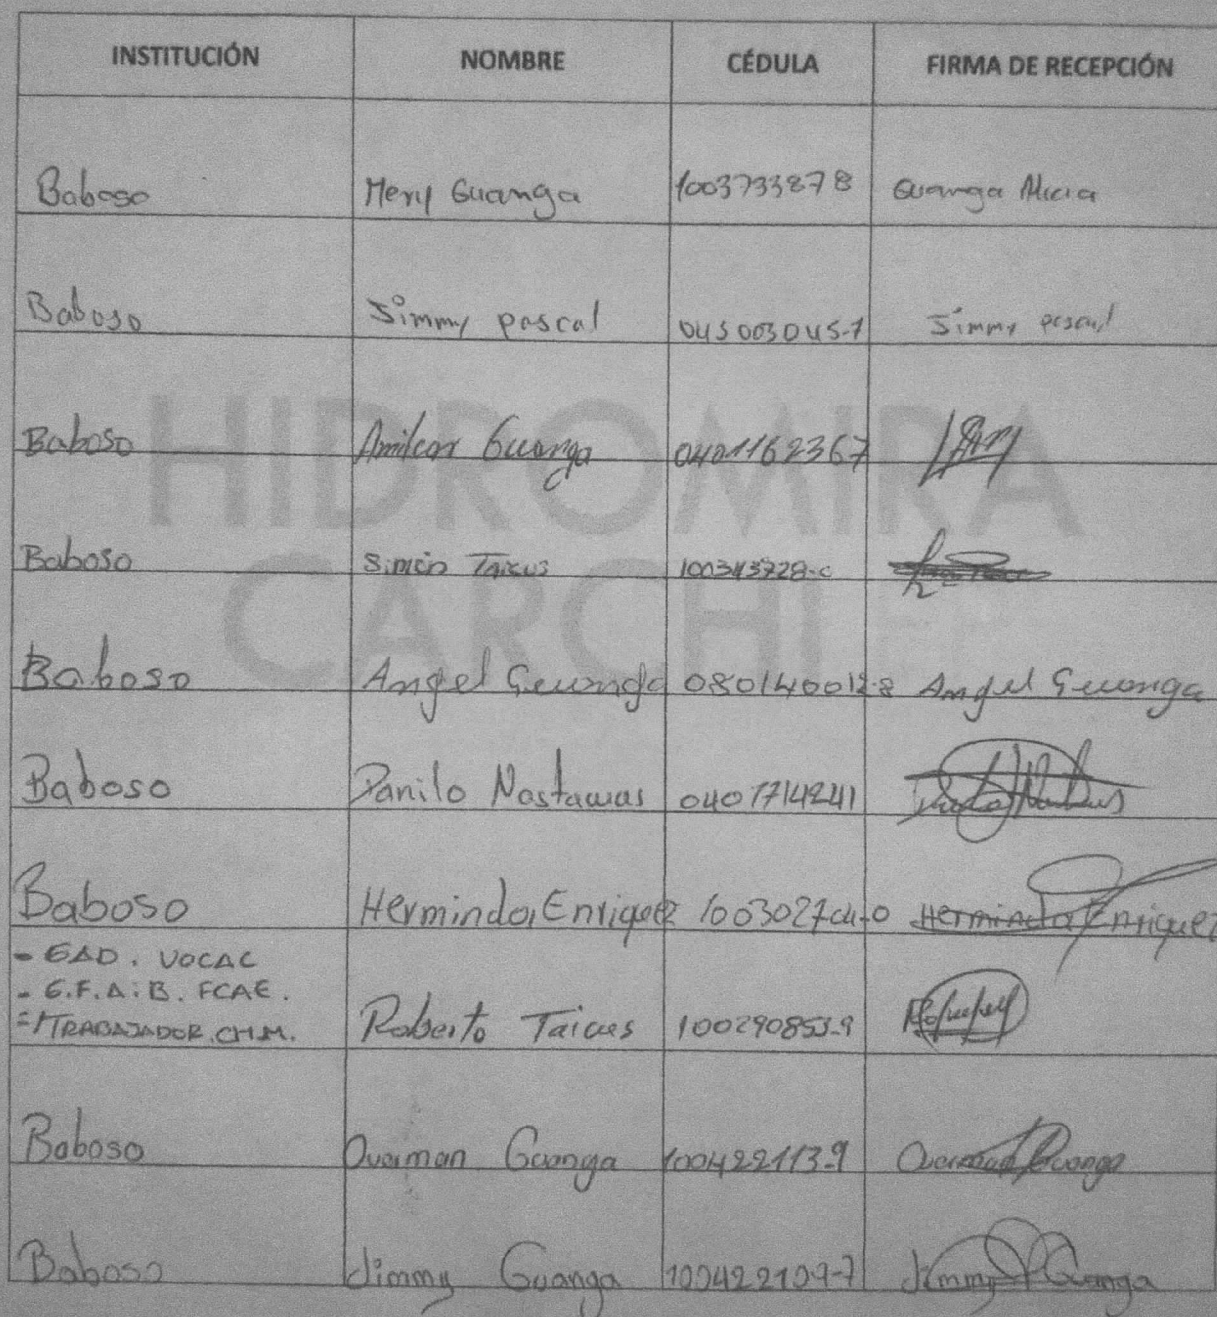 INSTITUCIÓN NOMBRE CÉDULA FIRMA DE RECEPCIÓN
Baboso Mery Guanga 1003733878 Guanga Alicia
Baboso Jimmy pascal 045003045-1 Jimmy pascal
HIDROMIRA
Baboso Amilcar Guanga 0401162367
Baboso Simón Taicus
CARCHI
Baboso Angel Guanga 080140012-8 Angel Guanga
Baboso Danilo Nastacuas 0401714241
Baboso Herminda Enriquez Herminda Enriquez
- GAD. VOCAC
- G.F.A.i B. FCAE.
TRABAJADOR. CH.M. Roberto Taicus 100290853-9
Baboso Oveiman Guanga 100422113-9 Oveiman Guanga
Baboso Jimmy Guanga 100422109-7 Jimmy Guanga